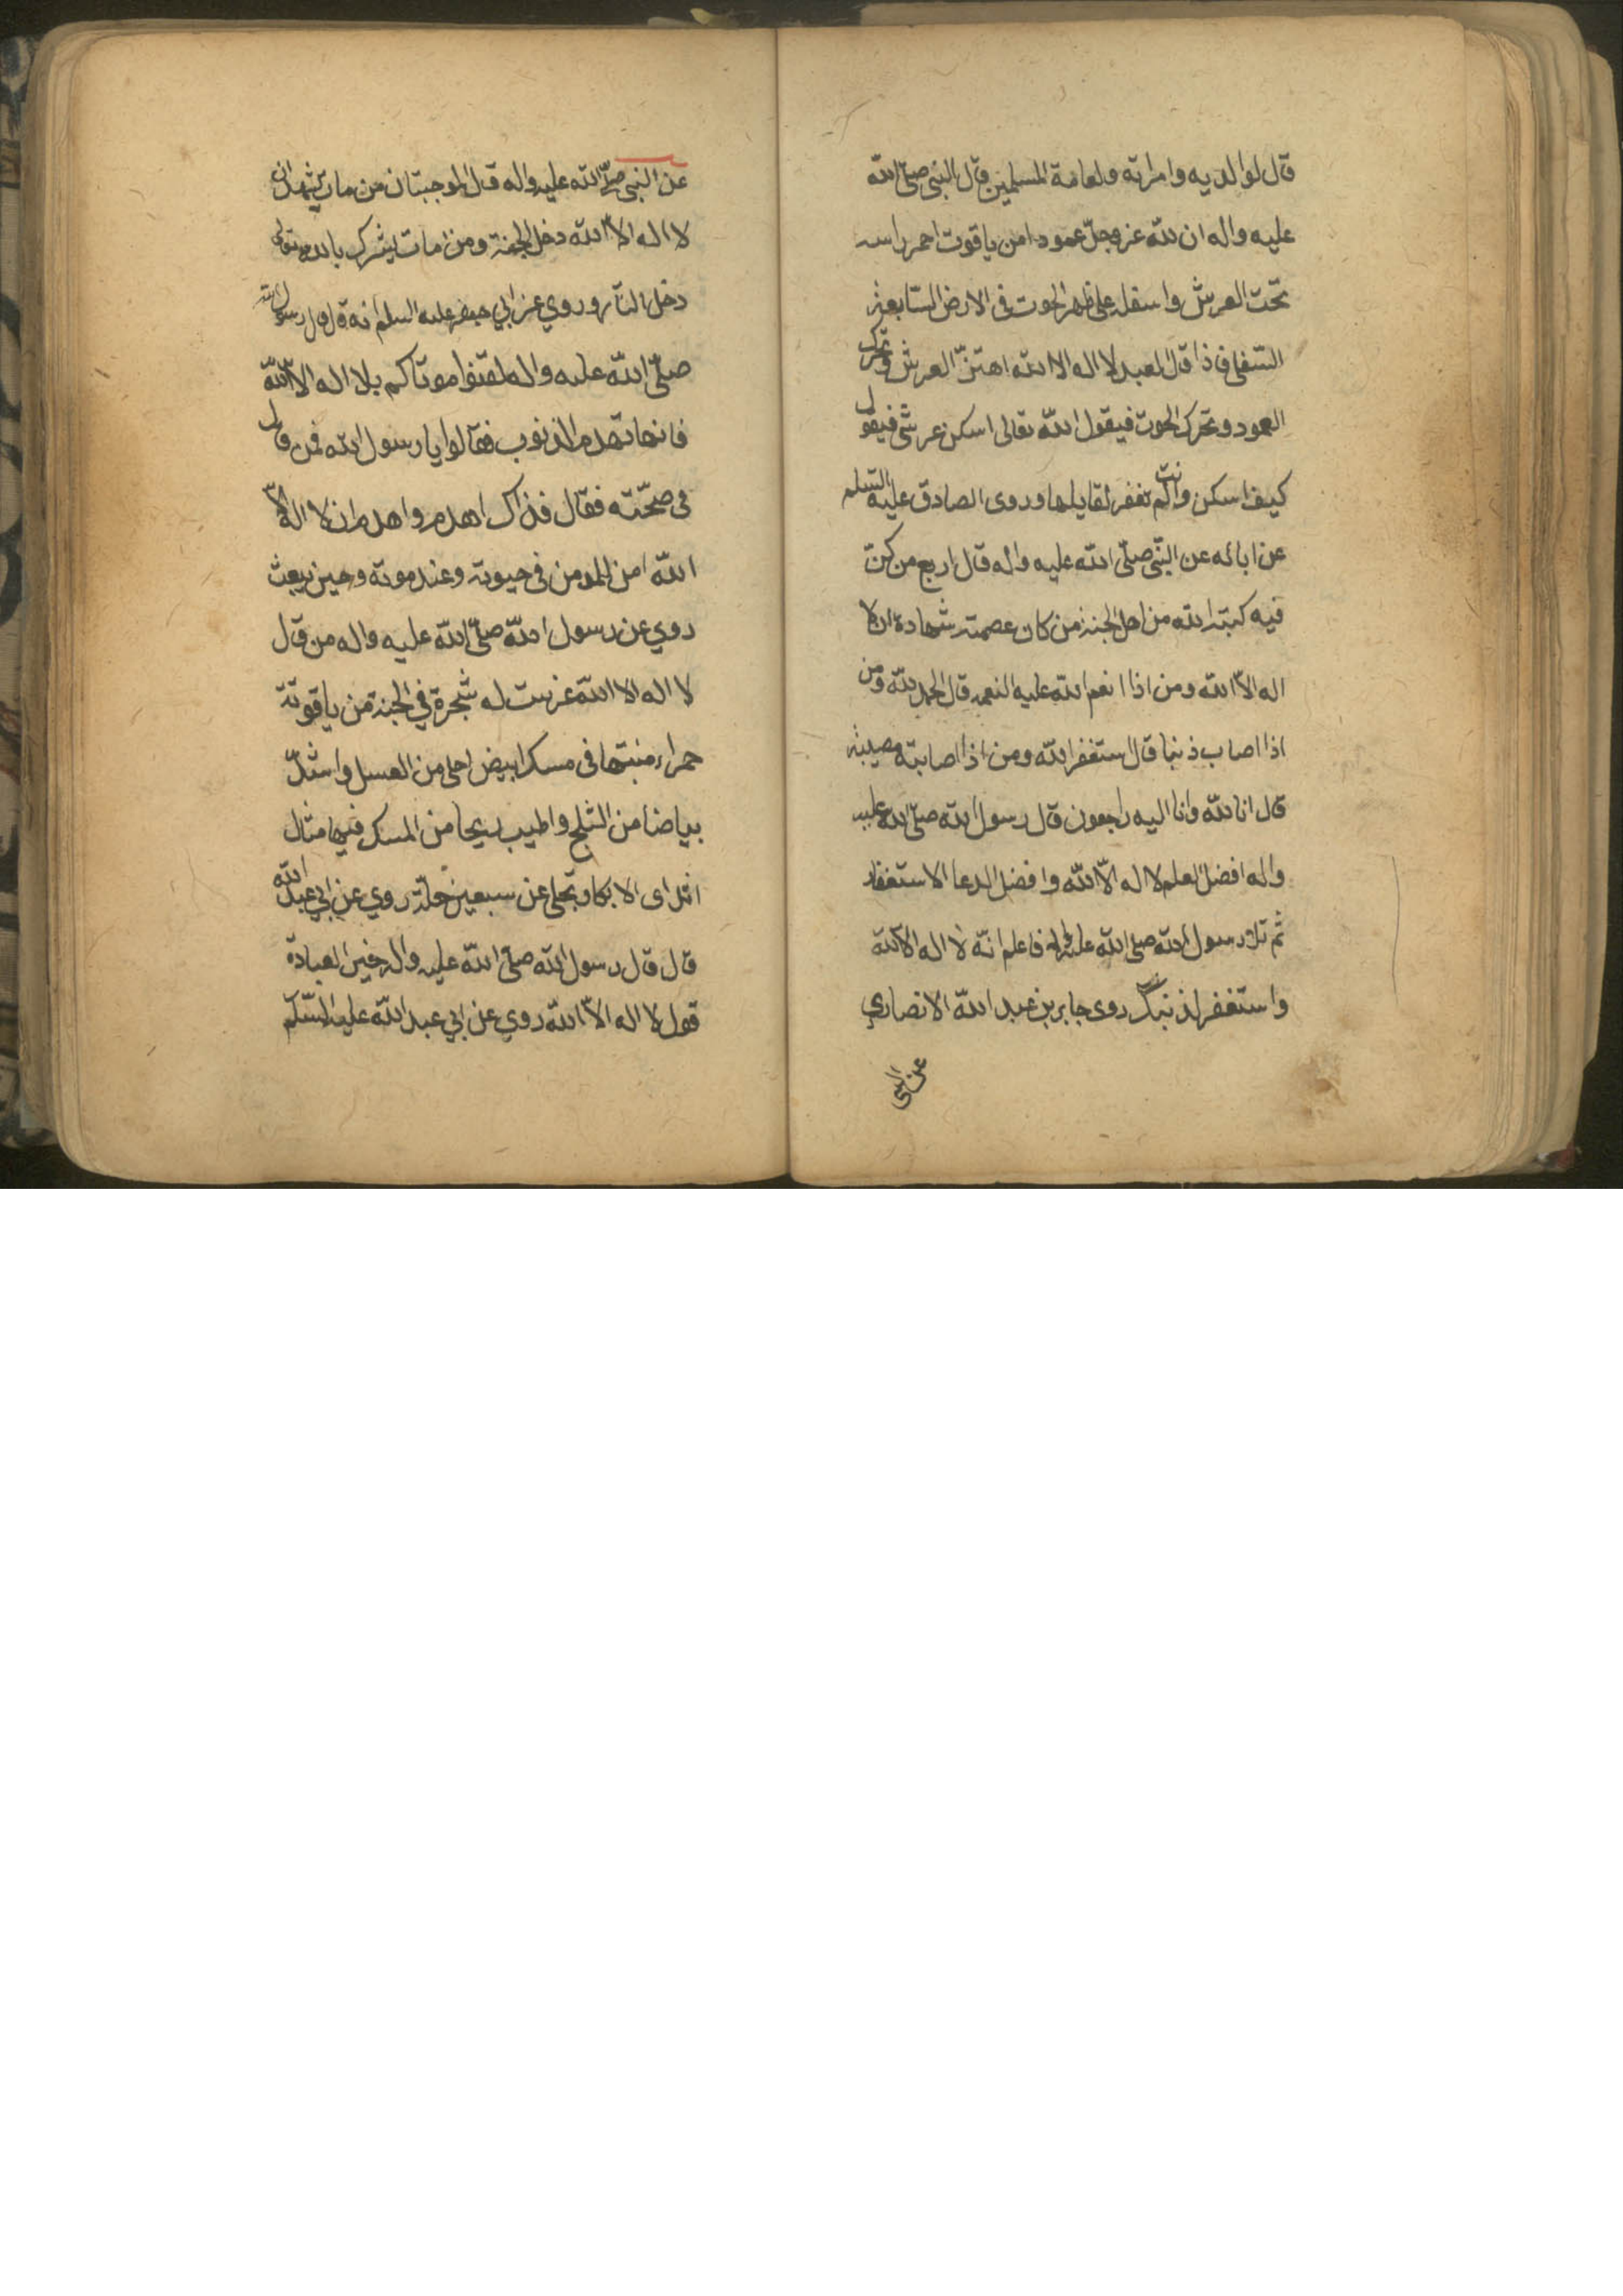 قال لوالديه وامراته ولعامة المسلمين قال النبي صلى الله
عليه واله ان لله عز وجل عمودا من ياقوت احمر راسه
تحت العرش واسفله على ظهر الحوت فى الارض السابعة
السفلى فاذا قال العبد لا اله الا الله اهتزّ العرش وتحرك
العمود وتحرك الحوت فيقول الله تعالى اسكن عرشى فيقول
كيف اسكن وانت لم تغفر لقايلها وروى الصادق عليه السلم
عن ابائه عن النبى صلى الله عليه واله قال اربع من كنّ
فيه كتبه الله من اهل الجنة من كان عصمته شهادة ان لا
اله الا الله ومن اذا انعم الله عليه النعمه قال الحمد لله ومن
اذا اصاب ذنبا قال استغفر الله ومن اذا اصابته مصيبة
قال انا لله وانا اليه راجعون قال رسول الله صلى الله عليه
واله افضل العلم لا اله الا الله وافضل الدعا الاستغفار
ثم تلا رسول الله صلى الله عليه واله فاعلم انّه لا اله الا الله
واستغفر لذنبك روى جابر بن عبد الله الانصاري
عن النبى
عن النبى صلى الله عليه واله قال الموجبتان من مات يشهد ان
لا اله الا الله دخل الجنة ومن مات يشرك بالله تعالى
دخل النار وروي عن ابي جعفر عليه السلم انه قال قال رسول الله
صلّى الله عليه واله لقنوا موتاكم بلا اله الا الله
فانها تهدم الذنوب فقالوا يا رسول الله فمن قال
فى صحّته فقال فذاك اهدم واهدم ان لا اله الا
الله امن للمومن فى حيوته وعند موته وحين يبعث
روي عن رسول الله صلّى الله عليه واله من قال
لا اله الا الله غرست له شجرة في الجنة من ياقوتة
حمراء منبتها فى مسك ابيض احلى من العسل واشدّ
بياضا من الثلج واطيب ريحا من المسك فيها مثال
اثداى الابكار تجلى عن سبعين حلة روي عن ابي عبد الله
قال قال رسول الله صلّى الله عليه واله خير العبادة
قول لا اله الا الله روي عن ابي عبد الله عليه السّلم